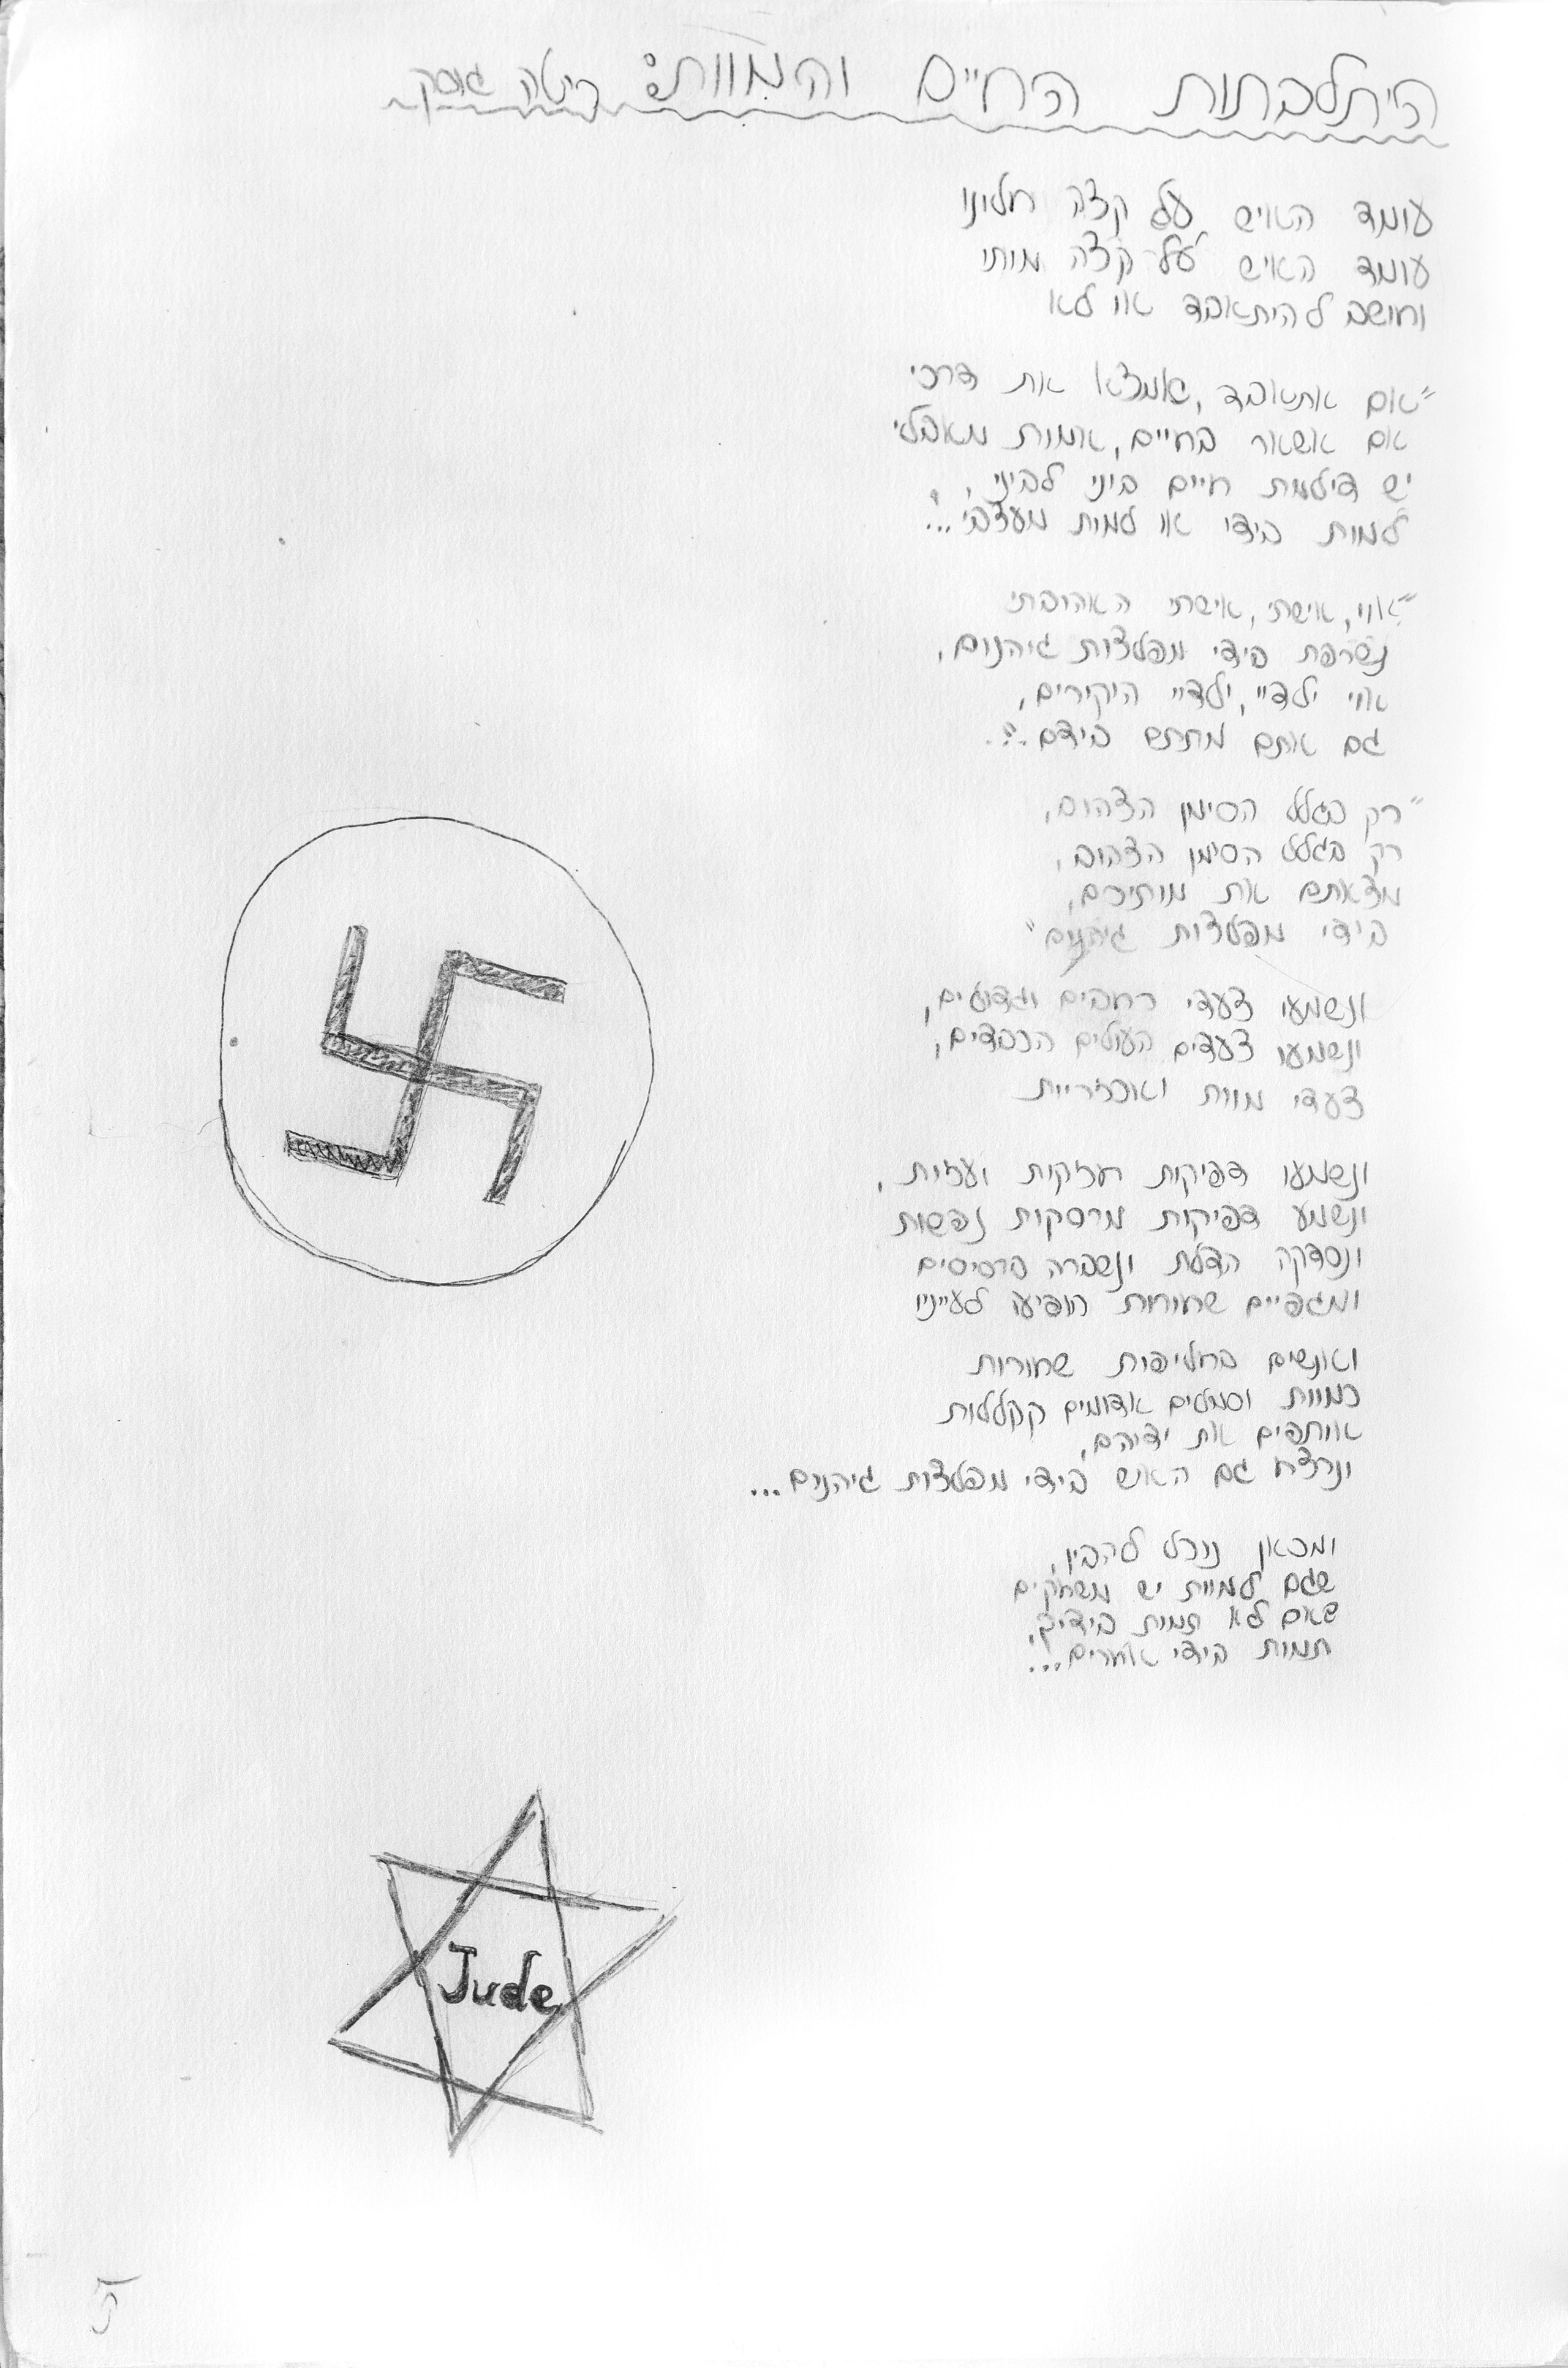 היתלבתות החיים והמוות:
עומד האיש על קצה חלונו
עומד האיש על קצה מותו
וחושב להיתאבד או לא
"אם אתאבד, אמצא את דרכי
אם אשאר בחיים, אמות מאבלי
יש דילמת חיים ביני לביני,
למות בידי או למות מעצבי...
"אוי, אישתי, אישתי האהובתי
נשרפת בידי מפלצות גיהנום,
אוי ילדיי, ילדיי היקרים,
גם אתם מתתם בידם...
"רק בגלל הסימן הצהוב,
רק בגלל הסימן הצהוב,
מצאתם את מותיכם,
בידי מפלצות גיהנום"
ונשמעו צעדי רחבים וגדולים,
ונשמעו צעדים העולים הכבדים,
צעדי מוות ואכזריית
ונשמעו דפיקות חזקות ועזות,
ונשמע דפיקות מרסקות נפשות
ונסדקה הדלת ונשברה פרסיסים
ומגפיים שחורות הופיעו לעייניו
ואנשים בחליפות שחורות
כמוות וסמלים אדומים קקללות
אותפים את ידיהם,
ונרצח גם האיש בידי מפלצות גיהנום...
ומכאן נוכל להבין,
שגם למוות יש משחקים
שאם לא תמות בידיך,
תמות בידי אחרים...
Jude
5